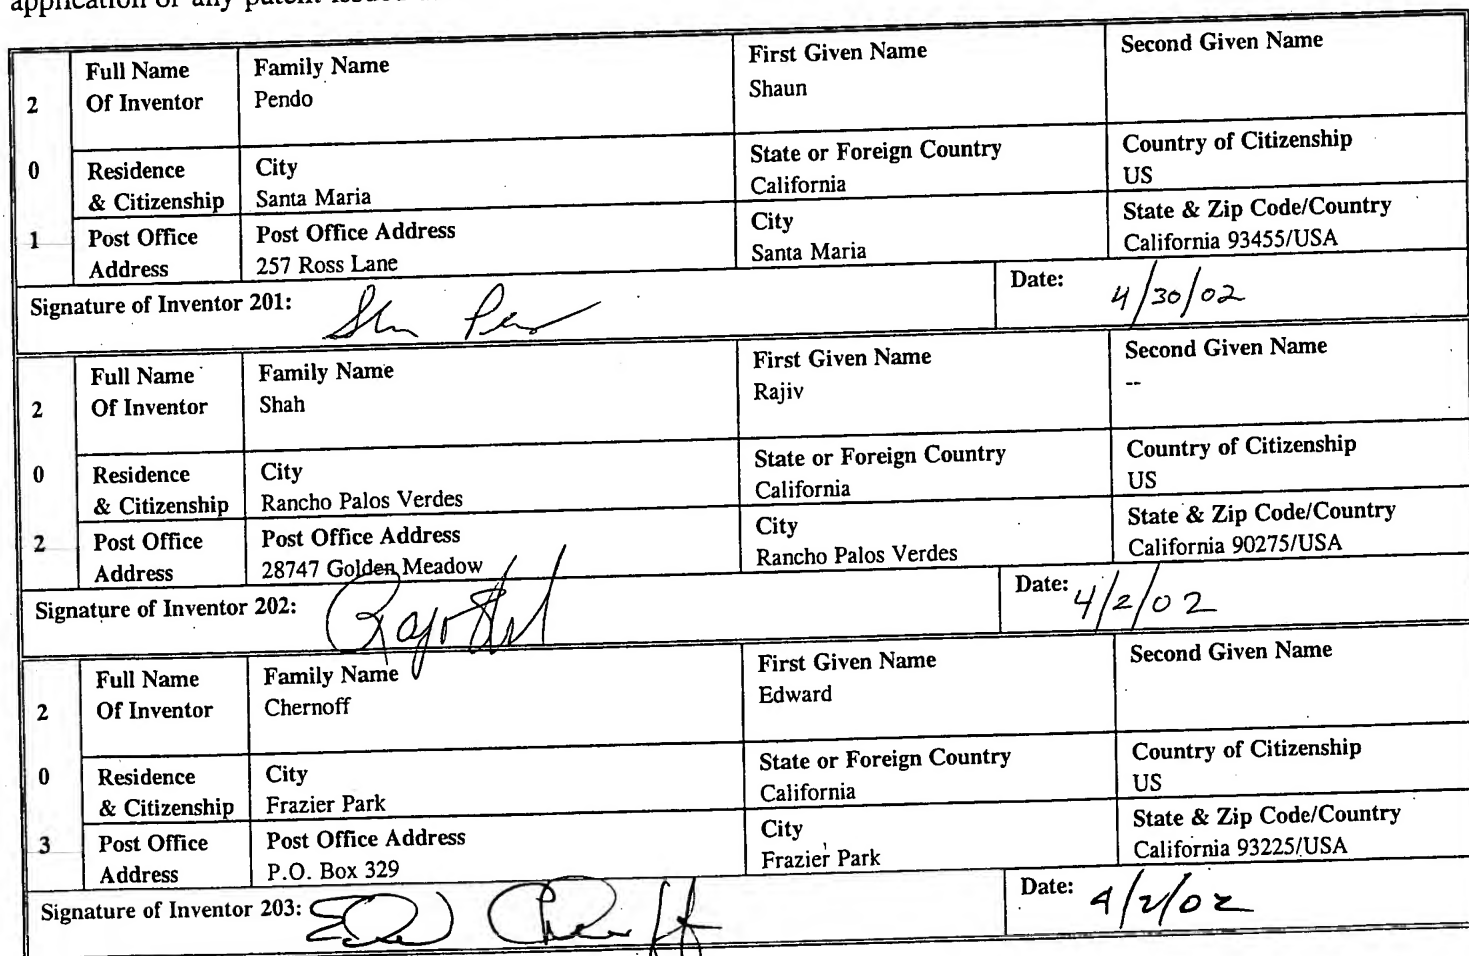 application or any patent issued
2 Full Name Of Inventor Family Name Pendo First Given Name Shaun Second Given Name
0 Residence & Citizenship City Santa Maria State or Foreign Country California Country of Citizenship US
1 Post Office Address Post Office Address 257 Ross Lane City Santa Maria State & Zip Code/Country California 93455/USA
Signature of Inventor 201: Date: 4/30/02
2 Full Name Of Inventor Family Name Shah First Given Name Rajiv Second Given Name --
0 Residence & Citizenship City Rancho Palos Verdes State or Foreign Country California Country of Citizenship US
2 Post Office Address Post Office Address 28747 Golden Meadow City Rancho Palos Verdes State & Zip Code/Country California 90275/USA
Signature of Inventor 202: Date: 4/2/02
2 Full Name Of Inventor Family Name Chernoff First Given Name Edward Second Given Name
0 Residence & Citizenship City Frazier Park State or Foreign Country California Country of Citizenship US
3 Post Office Address Post Office Address P.O. Box 329 City Frazier Park State & Zip Code/Country California 93225/USA
Signature of Inventor 203: Date: 4/2/02